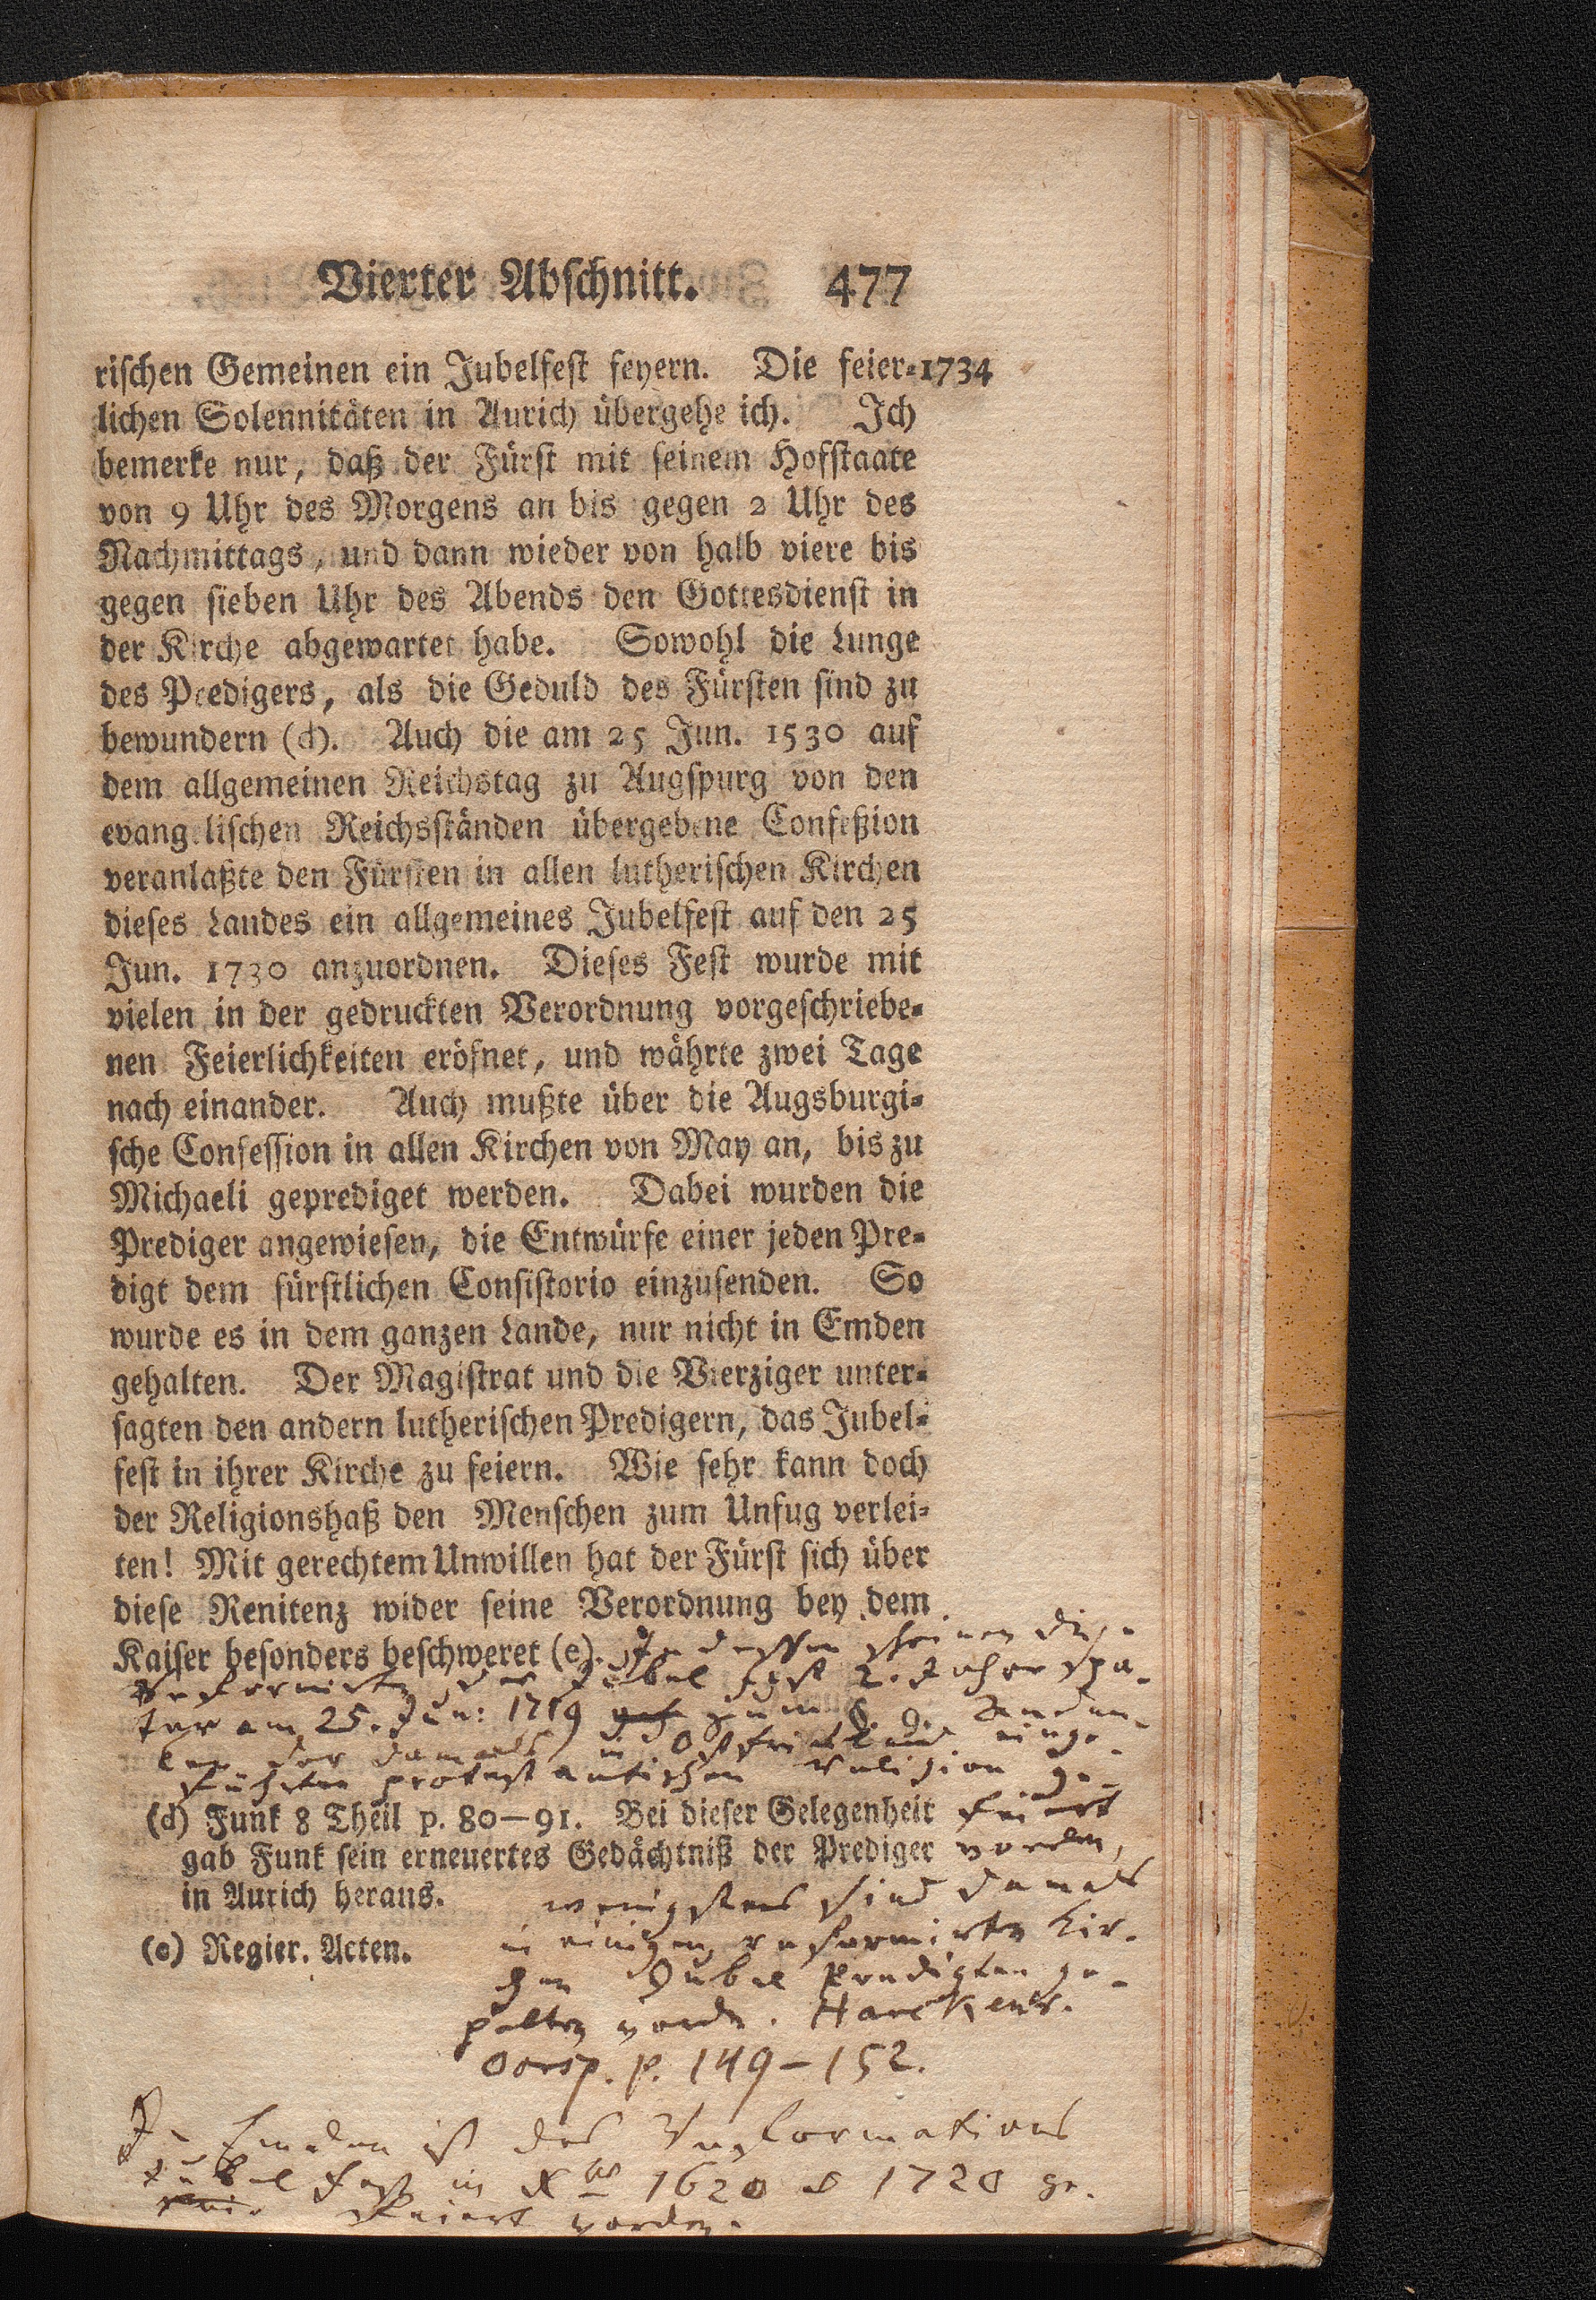 Vierter Abschnitt. 477
rischen Gemeinen ein Jubelfest feyern. Die feier- 1734
lichen Solennitäten in Aurich übergehe ich. Ich
bemerke nur, daß der Fürst mit seinem Hofstaate
von 9 Uhr des Morgens an bis gegen 2 Uhr des
Nachmittags, und dann wieder von halb viere bis
gegen sieben Uhr des Abends den Gottesdienst in
der Kirche abgewartet habe. Sowohl die Lunge
des Predigers, als die Geduld des Fürsten sind zu
bewundern (d). Auch die am 25 Jun. 1530 auf
dem allgemeinen Reichstag zu Augspurg von den
evangelischen Reichsständen übergebene Confeßion
veranlaßte den Fürsten in allen lutherischen Kirchen
dieses Landes ein allgemeines Jubelfest auf den 25
Jun. 1730 anzuordnen. Dieses Fest wurde mit
vielen in der gedruckten Verordnung vorgeschriebe-
nen Feierlichkeiten eröfnet, und währte zwei Tage
nach einander. Auch mußte über die Augsburgi-
sche Confession in allen Kirchen von May an, bis zu
Michaeli geprediget werden. Dabei wurden die
Prediger angewiesen, die Entwürfe einer jeden Pre-
digt dem fürstlichen Consistorio einzusenden. So
wurde es in dem ganzen Lande, nur nicht in Emden
gehalten. Der Magistrat und die Vierziger unter-
sagten den andern lutherischen Predigern, das Jubel-
fest in ihrer Kirche zu feiern. Wie sehr kann doch
der Religionshaß den Menschen zum Unfug verlei-
ten! Mit gerechtem Unwillen hat der Fürst sich über
diese Renitenz wider seine Verordnung bey dem
Kaiser besonders beschweret (e). Indessen scheinen die
Reformirten das Jubel Fest 2. Jahre spä-
ter am 25. Jun: zum Anden-
ken der damals in Ostfriesland einge-
führten protestantischen Religion ge-
(d) Funk 8 Theil p. 80—91. Bei dieser Gelegenheit feiert
gab Funk sein erneuertes Gedächtniß der Prediger worden,
in Aurich heraus. wenigstens sind damals
(e) Regier. Acten. in einigen reformirten Kir-
chen Jubel Predigten ge-
halten worden. Harckenr.
Oorsp. p. 149-152.
In Emden ist das Reformations
Jubel Fest in Xbr 1620 1720 ge-
feiert worden.